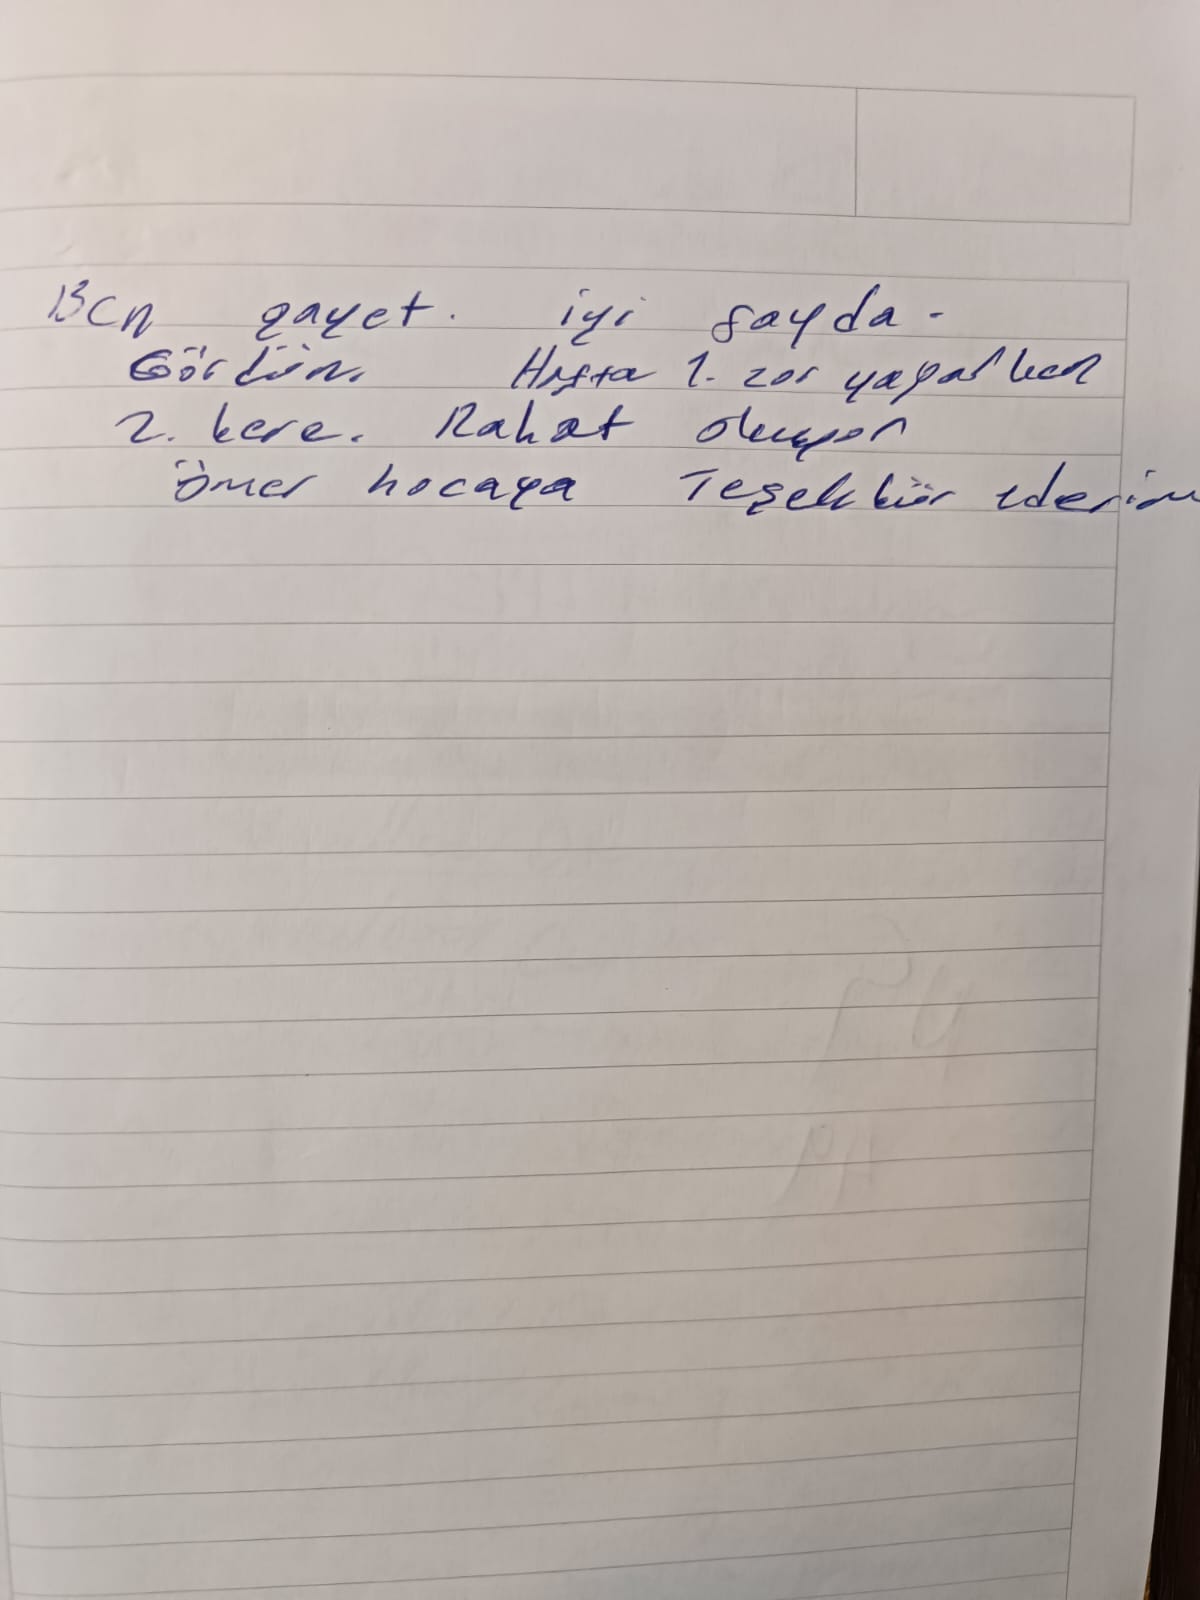 Ben gayet. iyi fayda -
Gördüm. Hafta 1. zor yaparken
2. kere. Rahat oluyor
Ömer hocaya Teşekkür ederim